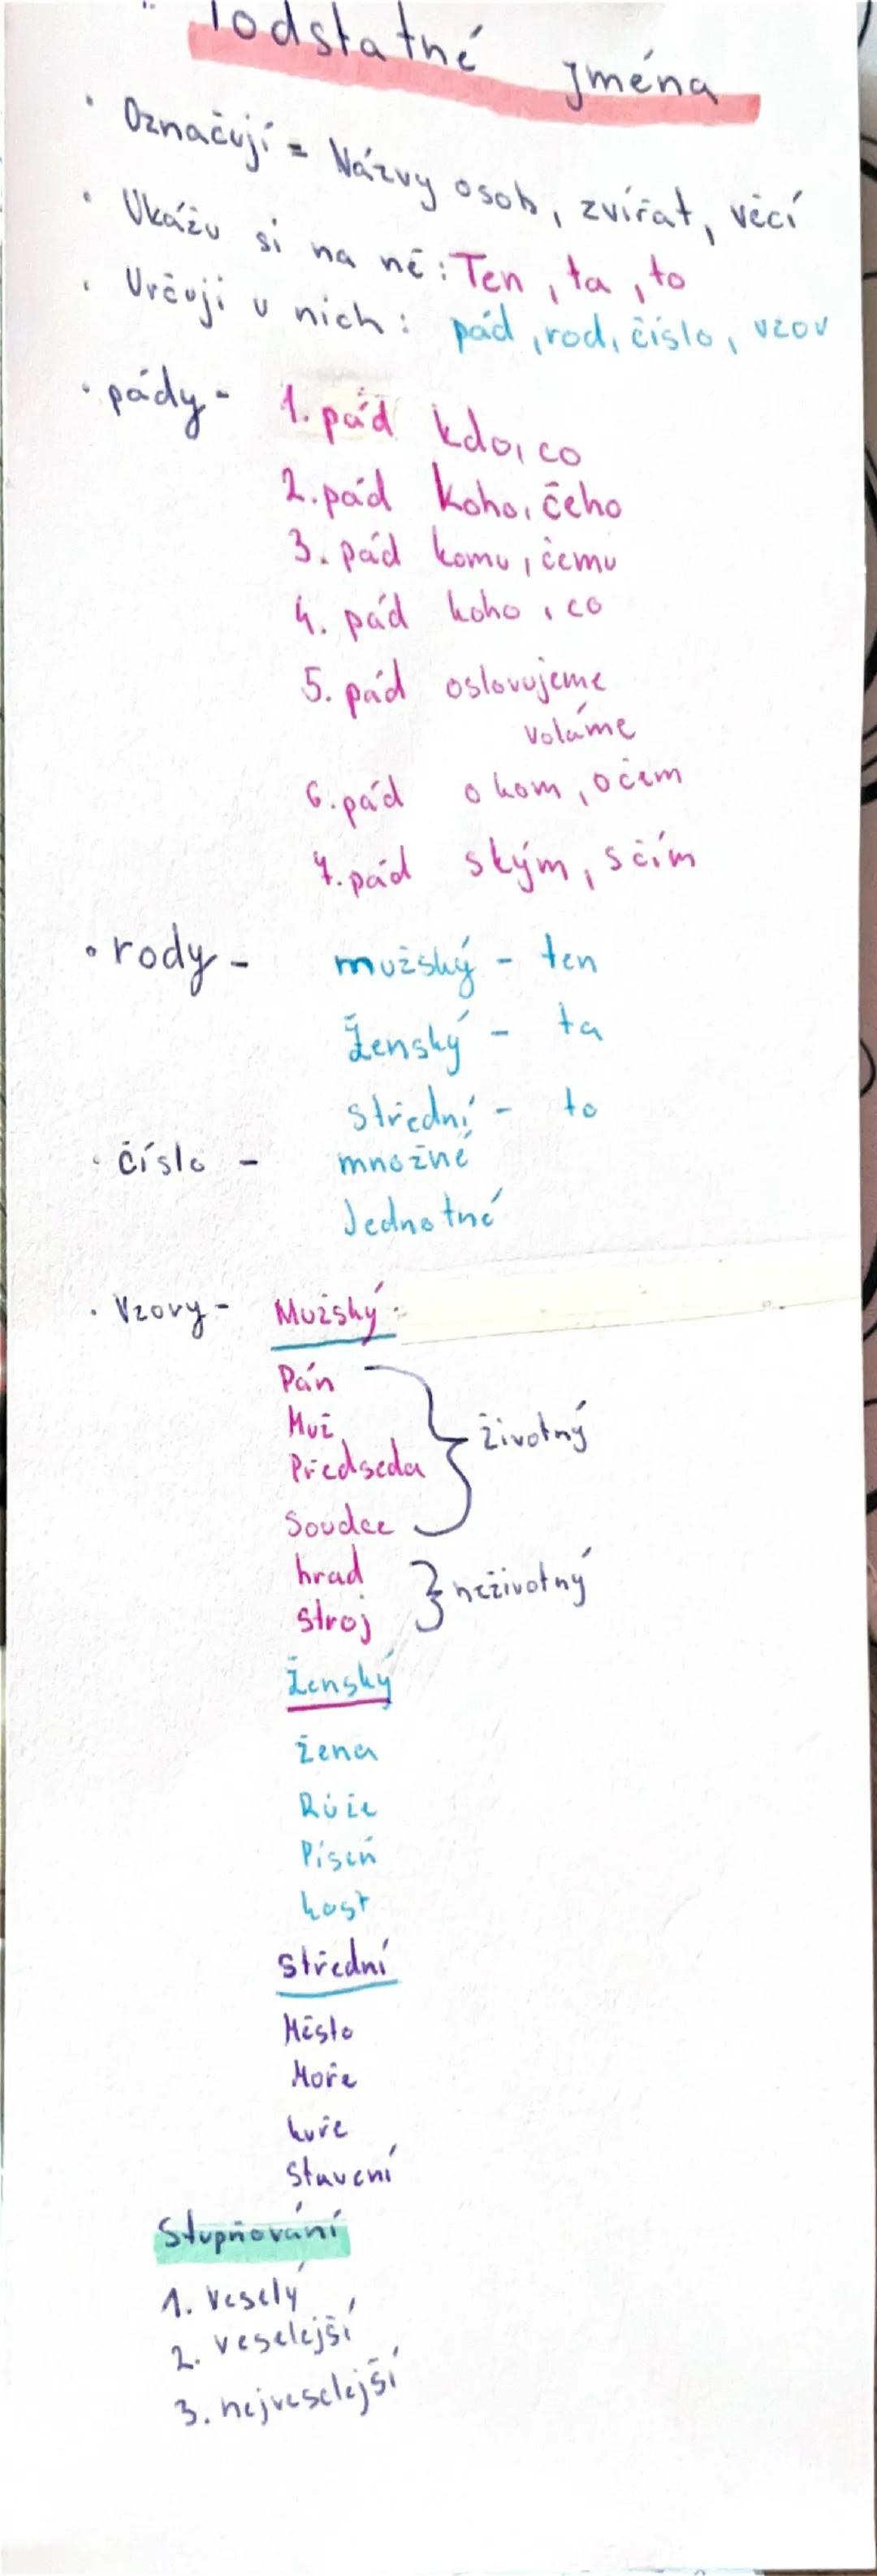 Podstatné jména
• Označují = Názvy osob, zvířat, věcí
• Ukážu si na ně: Ten, ta, to
• Určuji u nich: pád, rod, číslo, vzov
• pády - 1. pád kdo, co
2. pád koho, čeho
3. pád komu, čemu
4. pád koho, co
5. pád oslovujeme
voláme
6. pád o kom, o čem
7. pád s kým, s čím
• rody - mužský - ten
Ženský - ta
střední - to
• číslo - množné
Jednotné
• Vzory - Mužský
Pán
Muž
Předseda
Soudce
životný
hrad
stroj
neživotný
Ženský
žena
Růže
Píseň
kost
střední
Město
Moře
kuře
Stavení
Stupňování
1. veselý
2. veselejší
3. nejveselejší